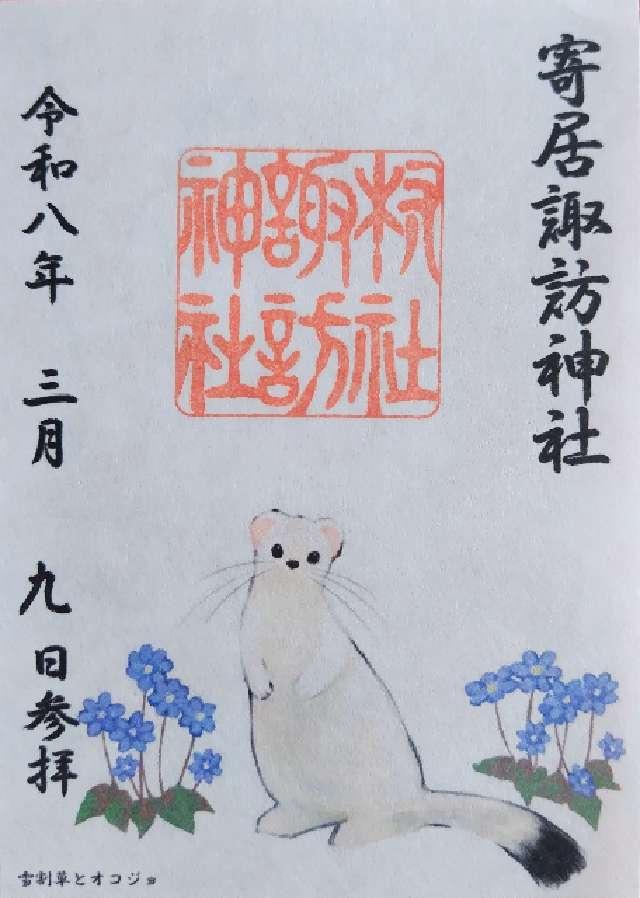 寄居諏訪神社
村社
諏訪
神社
令和八年 三月 九日参拝
雪割草とオコジョ